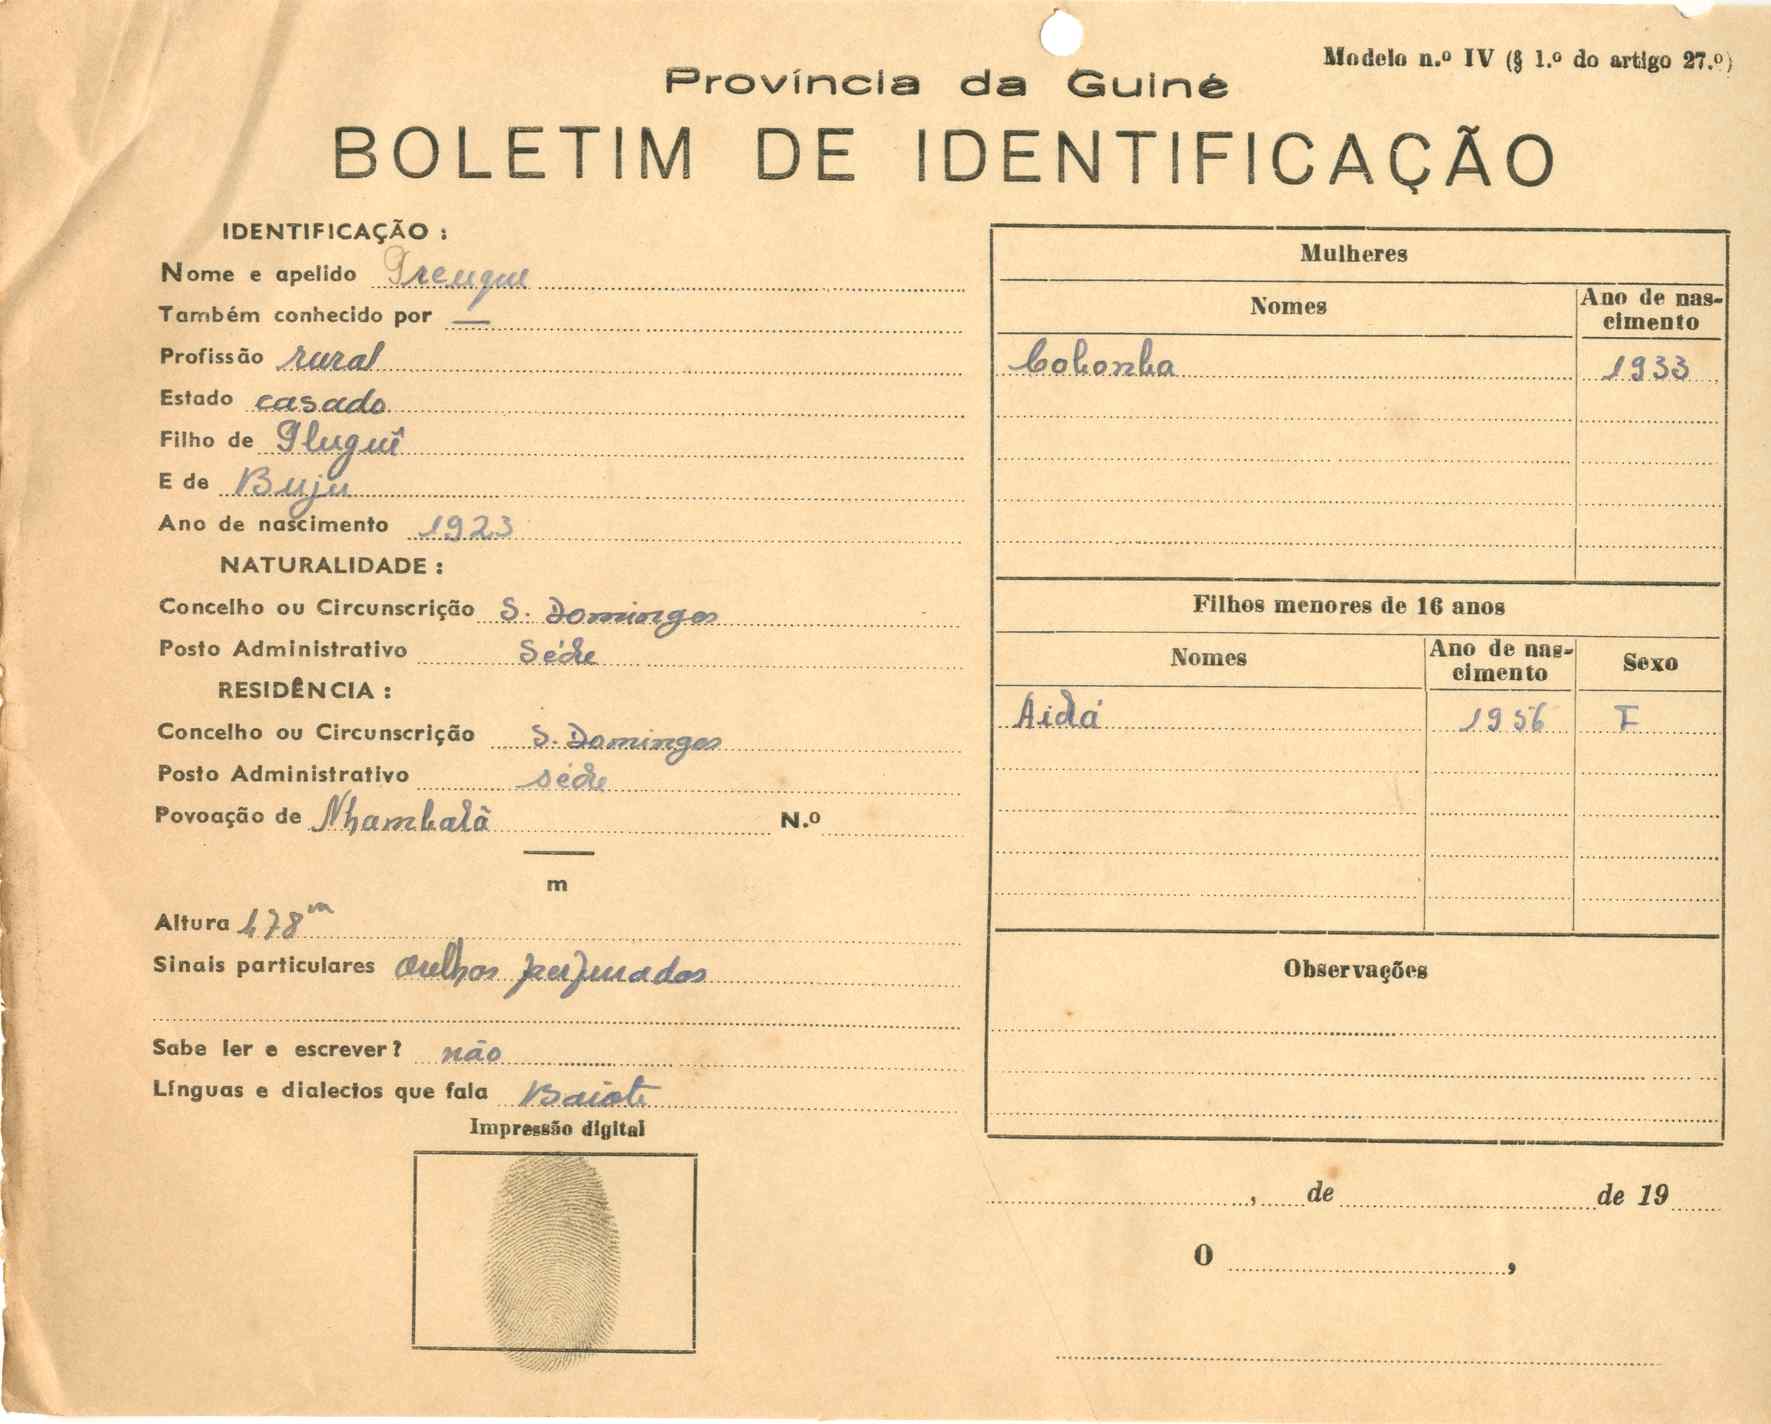 Modelo n.º IV (§ 1.º do artigo 27.º)
Província da Guiné
BOLETIM DE IDENTIFICAÇÃO
IDENTIFICAÇÃO :
Nome e apelido
Também conhecido por —
Profissão rural
Estado casado
Filho de
E de Buju
Ano de nascimento 1923
NATURALIDADE :
Concelho ou Circunscrição S. Domingos
Posto Administrativo Séde
RESIDÊNCIA :
Concelho ou Circunscrição S. Domingos
Posto Administrativo séde
Povoação de Nhambalã N.º
m
Altura 1,78 m
Sinais particulares orelhas perfuradas
Sabe ler e escrever? não
Línguas e dialectos que fala Baiote
Impressão digital
Mulheres
Nomes Ano de nas-
cimento
1933
Filhos menores de 16 anos
Nomes Ano de nas-
cimento Sexo
Aidá 1956 F
Observações
, de de 19
O ,